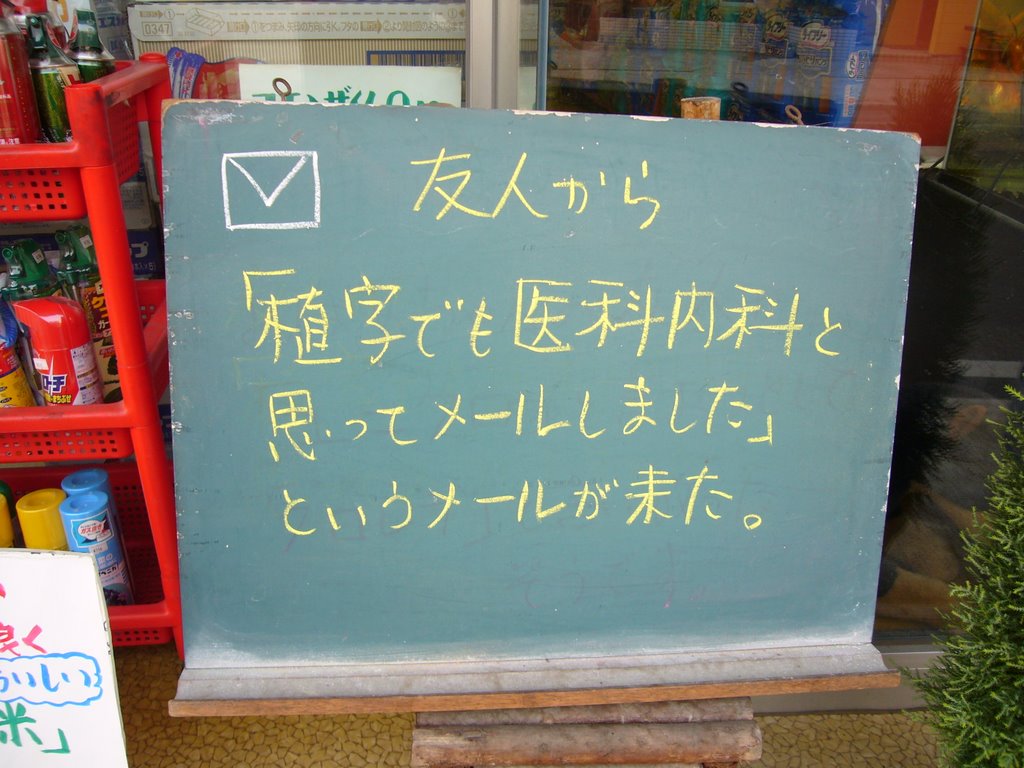 友人から
「植字でも医科内科と
思ってメールしました」
というメールが来た。
良く
おいしい
米」
0347